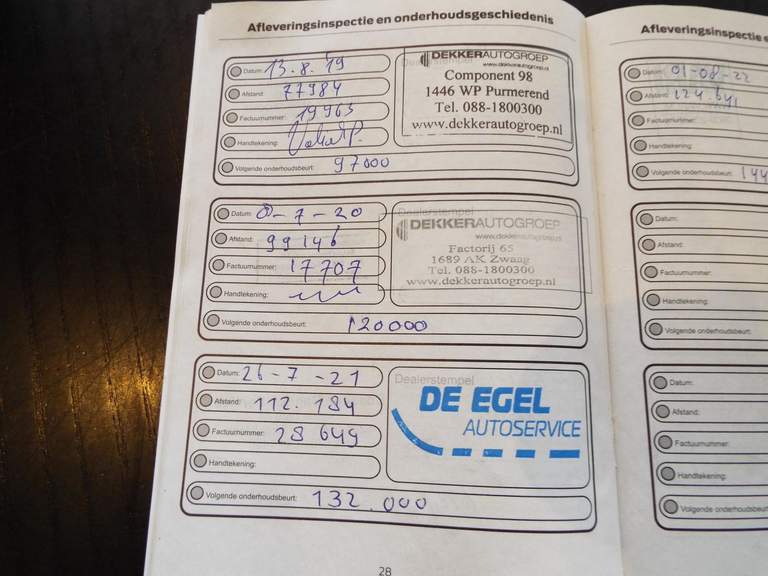 Afleveringsinspectie en onderhoudsgeschiedenis
Datum: 13.8.'19
Afstand: 77984
Factuurnummer: 19963
Handtekening:
Volgende onderhoudsbeurt: 97000
DEKKERAUTOGROEP
www.dekkerautogroep.nl
Component 98
1446 WP Purmerend
Tel. 088-1800300
www.dekkerautogroep.nl
Datum: 8-7-20
Afstand: 99146
Factuurnummer: 17707
Handtekening:
Volgende onderhoudsbeurt: 120000
Dealerstempel
DEKKERAUTOGROEP
www.dekkerautogroep.nl
Factorij 65
1689 AK Zwaag
Tel. 088-1800300
www.dekkerautogroep.nl
Datum: 26-7-21
Afstand: 112.184
Factuurnummer: 28 649
Handtekening:
Volgende onderhoudsbeurt: 132.000
Dealerstempel
DE EGEL
AUTOSERVICE
28
Afleveringsinspectie
Datum: 01-08-22
Afstand: 124.641
Factuurnummer:
Handtekening:
Volgende onderhoudsbeurt: 144
Datum:
Afstand:
Factuurnummer:
Handtekening:
Volgende onderhoudsbeurt:
Datum:
Afstand:
Factuurnummer:
Handtekening:
Volgende onderhoudsbeurt